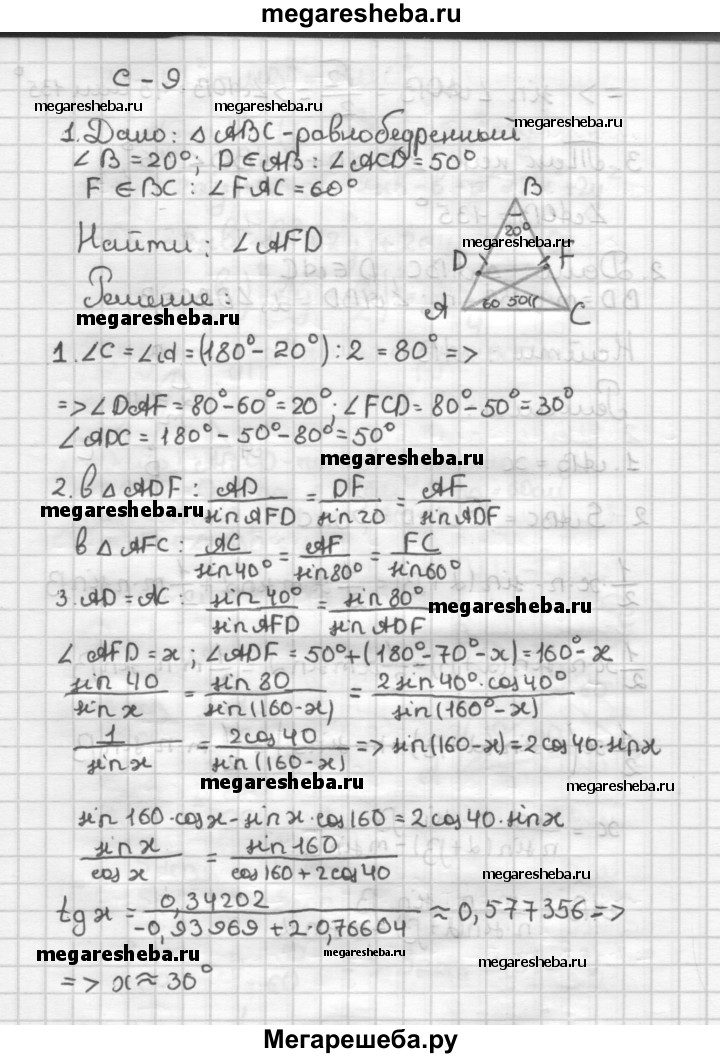 megaresheba.ru
С - 9.
megaresheba.ru megaresheba.ru megaresheba.ru
1. Дано: △ABC - равнобедренный
∠B = 20°; D ∈ AB : ∠ACD = 50°
F ∈ BC : ∠FAC = 60°
B
20°
Найти : ∠AFD
megaresheba.ru
D F
Решение :
A 60 50 C
megaresheba.ru
1. ∠C = ∠A = (180° - 20°) : 2 = 80° =>
=> ∠DAF = 80° - 60° = 20°; ∠FCD = 80° - 50° = 30°
∠ADC = 180° - 50° - 80° = 50°
megaresheba.ru
2. В △ADF : AD/sin AFD = DF/sin 20 = AF/sin ADF
megaresheba.ru
В △AFC : AC/sin 40° = AF/sin 80° = FC/sin 60°
3. AD = AC : sin 40°/sin AFD = sin 80°/sin ADF
megaresheba.ru
∠AFD = x ; ∠ADF = 50° + (180° - 70° - x) = 160° - x
sin 40/sin x = sin 80/sin(160 - x) = 2 sin 40° · cos 40°/sin(160° - x)
1/sin x = 2 cos 40/sin(160 - x) => sin(160 - x) = 2 cos 40 · sin x
megaresheba.ru megaresheba.ru
sin 160 · cos x - sin x · cos 160 = 2 cos 40 · sin x
sin x/cos x = sin 160/cos 160 + 2 cos 40
megaresheba.ru
tg x = 0,34202/-0,93969 + 2 · 0,76604 ≈ 0,577356 =>
megaresheba.ru megaresheba.ru megaresheba.ru
=> x ≈ 30°
Мегарешеба.ру